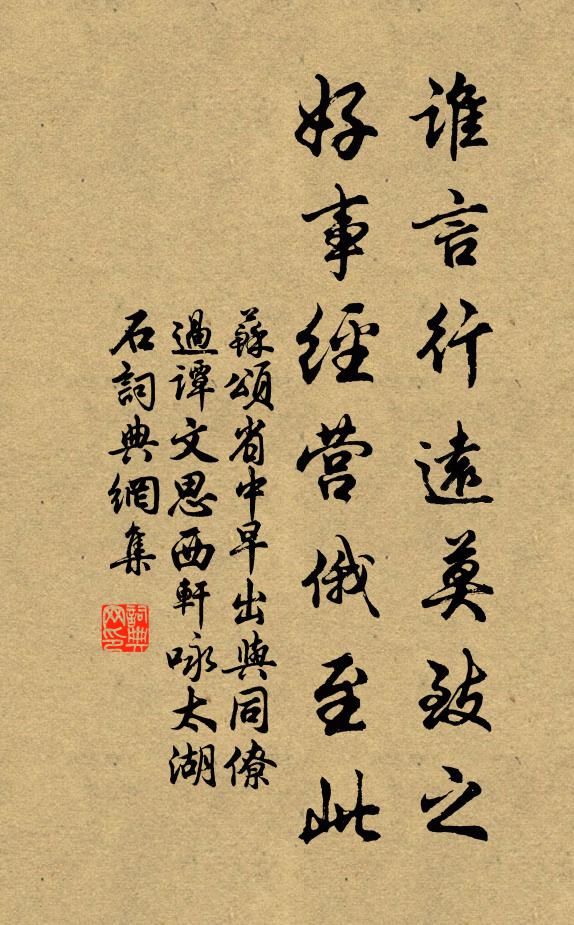 誰言行遠莫致之
好事經营俄至此
蘇頌省中早出與同僚
過譚文思西軒咏太湖
石詞典網集
詞典網印